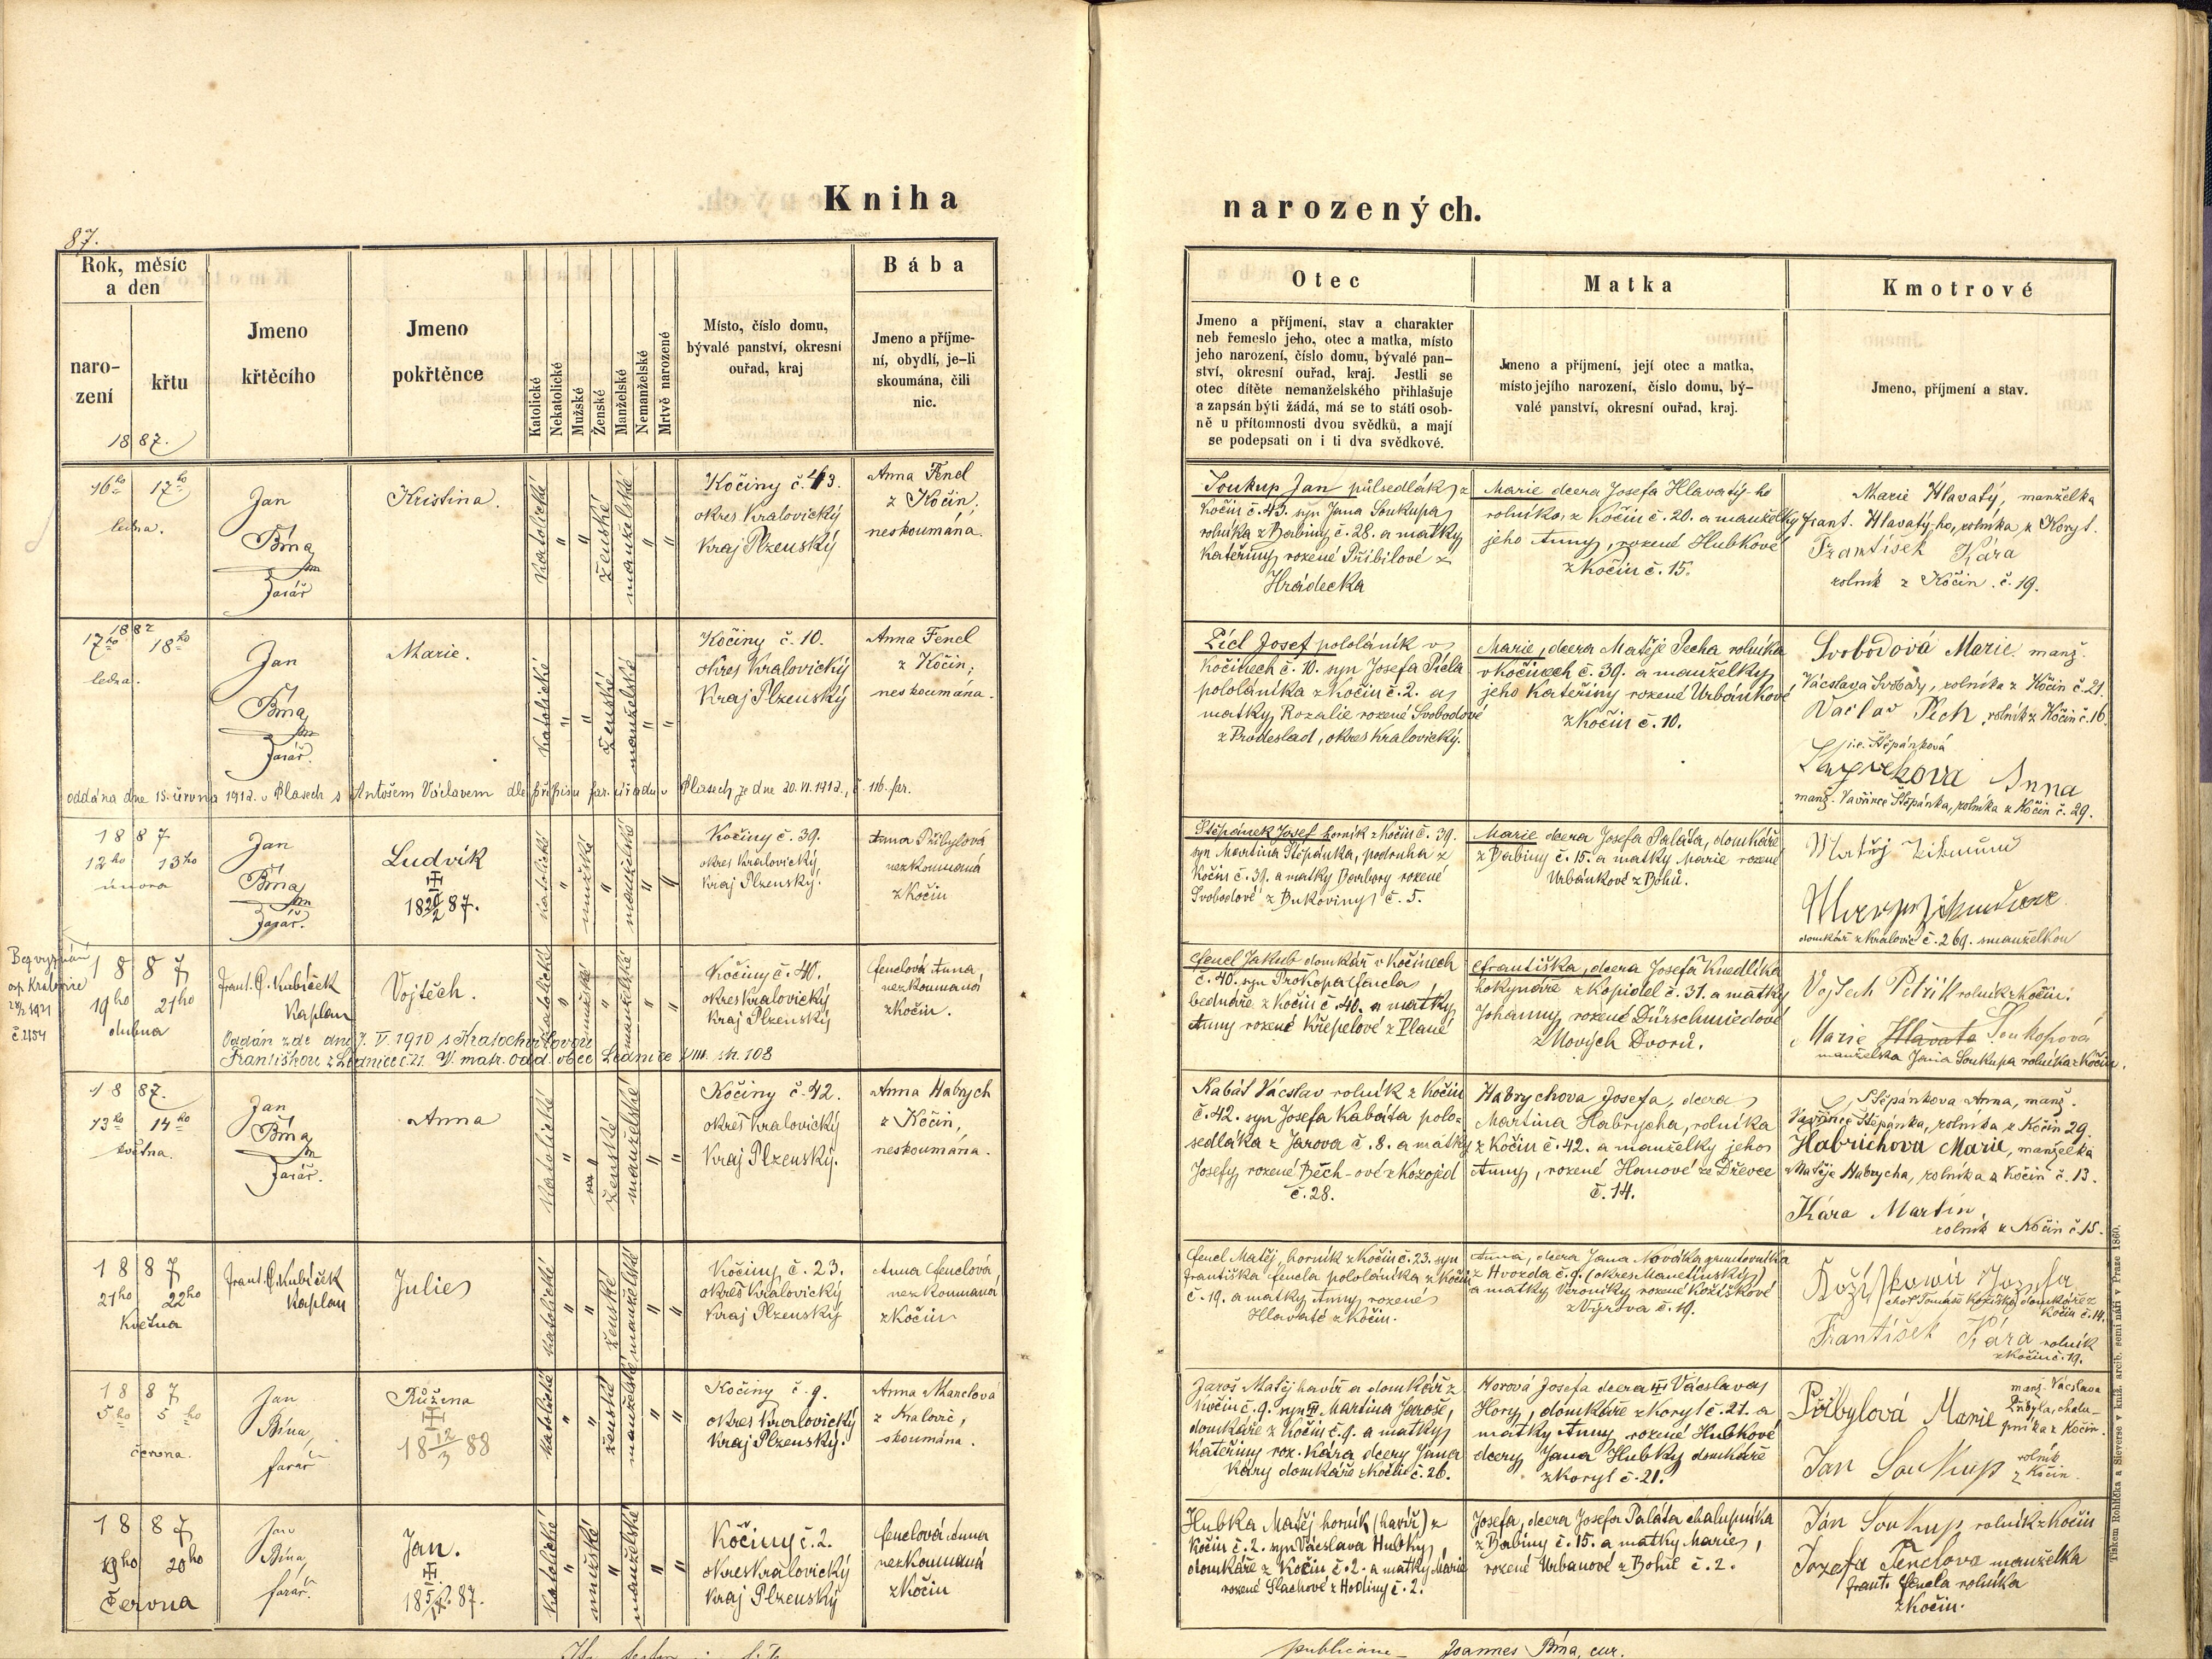 Kniha
narozených.
87.
Rok, měsíc
a den
naro-
zení
křtu
1887.
Jmeno
křtěcího
Jmeno
pokřtěnce
Katolické
Nekatolické
Mužské
Ženské
Manželské
Nemanželské
Mrtvě narozené
Místo, číslo domu,
bývalé panství, okresní
ouřad, kraj
Bába
Jmeno a příjme-
ní, obydlí, je-li
skoumána, čili
nic.
Otec
Jmeno a příjmení, stav a charakter
neb řemeslo jeho, otec a matka, místo
jeho narození, číslo domu, bývalé pan-
ství, okresní ouřad, kraj. Jestli se
otec dítěte nemanželského přihlašuje
a zapsán býti žádá, má se to státi osob-
ně u přítomnosti dvou svědků, a mají
se podepsati on i ti dva svědkové.
Matka
Jmeno a příjmení, její otec a matka,
místo jejího narození, číslo domu, bý-
valé panství, okresní ouřad, kraj.
Kmotrové
Jmeno, příjmení a stav.
16ho 17ho
ledna.
Jan
Bína
farář
Kristina.
katolické
"
"
ženské
manželské
"
"
Kočiny č. 43.
okres Kralovický
Kraj Plzenský
Anna Fencl
z Kočin;
neskoumána.
Soukup Jan půlsedlák z
Kočin č. 43. syn Jana Soukupa
rolníka z Babiny č. 28. a matky
Kateřiny rozené Přibilové z
Hrádecka
Marie dcera Josefa Hlavatý-ho
rolníka, z Kočin č. 20. a manželky
jeho Anny, rozené Hubkové
z Kočin č. 15.
Marie Hlavatý, manželka
Frant. Hlavatý-ho, rolníka z Koryt.
František Kára
rolník z Kočin č. 19.
1887
17ho 18ho
ledna.
Jan
Bína
farář.
Marie.
katolické
"
"
ženské
manželské
"
"
Kočiny č. 10.
okres Kralovický
Kraj Plzenský
Anna Fencl
z Kočin;
neskoumána.
Picl Josef pololáník v
Kočinech č. 10. syn Josefa Picla
pololáníka z Kočin č. 2. a
matky Rozalie rozené Svobodové
z Brodeslad, okres Kralovický.
Marie, dcera Matěje Pecha rolníka
v Kočinech č. 39. a manželky
jeho Kateřiny rozené Urbánkové
z Kočin č. 10.
Svobodová Marie manž.
Václava Svobody, rolníka z Kočin č. 21.
Václav Pech rolník z Kočin č. 16.
i.e. Štěpánková
Anna
manž. Vavřince Štěpánka, rolníka z Kočin č. 29.
oddána dne 15. června 1912. v Plasech s Antošem Václavem dle přípisu far. úřadu v Plasech ze dne 20. VI. 1912., č. 116. far.
1887
12ho 13ho
února
Jan
Bína
farář.
Ludvík
18 20/2 87.
katolické
"
mužské
"
manželské
"
"
Kočiny č. 39.
okres Kralovický
Kraj Plzenský.
Anna Přibylová
nezkoumaná
z Kočin
Štěpánek Josef horník z Kočin č. 39.
syn Martina Štěpánka, podruha z
Kočin č. 31. a matky Barbory rozené
Svobodové z Bukoviny č. 5.
Marie dcera Josefa Paláta, domkáře
z Babiny č. 15. a matky Marie rozené
Urbánkové z Bohů.
Matěj Zikmund
domkář z Kralovic č. 269. s manželkou
Bez vyznání
č. 2154
1887
19ho 21ho
dubna
Frant. Kubíček
Kaplan
Vojtěch.
katolické
"
mužské
"
manželské
"
"
Kočiny č. 40.
okres Kralovický
Kraj Plzenský
Fenclová Anna
nezkoumaná
z Kočin.
Fencl Jakub domkář v Kočinech
č. 40. syn Prokopa Fencla
bednáře z Kočin č. 40. a matky
Anny rozené Křepelové z Plané
Františka, dcera Josefa Knedlíka
hokynáře z Kopidel č. 31. a matky
Johanny rozené Dürschmiedové
z Nových Dvorů.
Vojtech Petřík rolník z Kočin.
Marie Hlavatá Soukupová
manželka Jana Soukupa rolníka z Kočin.
Oddán zde dne 7. V. 1910 s Kratochvílovou
Františkou z Lednice č. 21. Viz. matr. odd. obce Lednice VIII. str. 108
1887.
13ho 14ho
května.
Jan
Bína
farář.
Anna
katolické
"
"
ženské
manželské
"
"
Kočiny č. 42.
okres Kralovický
Kraj Plzenský.
Anna Habrych
z Kočin,
neskoumána.
Kabát Václav rolník z Kočin
č. 42. syn Josefa Kabáta polo-
sedláka z Jarova č. 8. a matky
Josefy rozené Bech-ové z Kozojed
č. 28.
Habrychova Josefa, dcera
Martina Habrycha, rolníka
z Kočin č. 42. a manželky jeho
Anny, rozené Hanové ze Dřevce
č. 14.
Štěpánkova Anna, manž.
Vavřince Štěpánka, rolníka z Kočin 29.
Habrichova Marie, manželka
Matěje Habrycha, rolníka z Kočin č. 13.
Kára Martin,
rolník z Kočin č. 15.
1887
21ho 22ho
Května
Frant. Kubíček
Kaplan
Julie
katolické
"
"
ženské
manželské
"
"
Kočiny č. 23.
okres Kralovický
Kraj Plzenský
Anna Fenclová
nezkoumaná
z Kočin
Fencl Matěj, horník z Kočin č. 23. syn
Františka Fencla pololáníka z Kočin
č. 19. a matky Anny rozené
Hlavaté z Kočin.
Anna, dcera Jana Nováka gruntovníka
z Hvozda č. 9. (okres Manetínský)
a matky Veroniky rozené Kožíškové
z Výrova č. 19.
Kožíškowá Jozefa
choť Tomáše Kožíška domkáře z
Kočin č. 14.
František Kára rolník
z Kočin č. 19.
1887
5ho 5ho
června.
Jan
Bína,
farář
Růžena
18 12/3 88
katolické
"
"
ženské
manželské
"
"
Kočiny č. 9.
okres Kralovický
Kraj Plzenský.
Anna Marclová
z Kralovic,
skoumána.
Jaroš Matěj havíř a domkář z
Kočin č. 9. syn Martina Jaroše,
domkáře z Kočin č. 9. a matky
Kateřiny roz. Kára dcery Jana
Káry domkáře z Kočin č. 26.
Horová Josefa dcera Václava
Hory, domkáře z Koryt č. 21. a
matky Anny rozené Hubkové
dcery Jana Hubky domkáře
z Koryt č. 21.
Přibylová Marie
manž. Václava
Přibyla, chalu-
pníka z Kočin.
Jan Soukup
rolník
z Kočin.
1887
19ho 20ho
Června
Jan
Bína,
farář.
Jan.
87.
katolické
"
mužské
"
manželské
"
"
Kočiny č. 2.
okres Kralovický
Kraj Plzenský
Fenclová Anna
nezkoumaná
z Kočin
Hubka Matěj horník (havíř) z
Kočin č. 2. syn Václava Hubky,
domkáře z Kočin č. 2. a matky Marie
rozené Slachové z Hodiny č. 2.
Josefa, dcera Josefa Paláta chalupníka
z Babiny č. 15. a matky Marie,
rozené Urbanové z Bohů č. 2.
Ján Soukup rolník z Kočin
Jozefa Fenclova manželka
Frant. Fencla rolníka
z Kočin.
Joannes Bína, cur.
Tiskem Rohlíčka a Sieverse v kníž. arcib. semináři v Praze 1860.